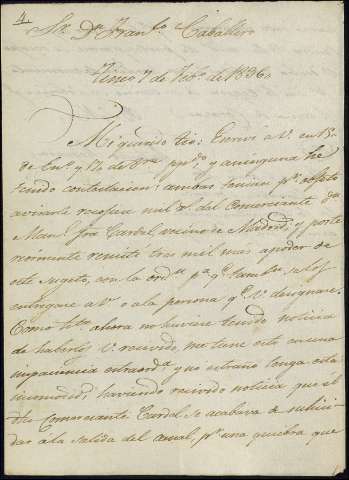 4.
Sr. Dn. Franco. Caballero
Tineo 7 de Febo. de 1836.
Mi querido tio: Escrivi a V. en 13
de Eno. y 12 de pto. y a ninguna he
tenido contestacion: ambas tenian pr. objeto
avisarle recojiese mil rs. del Comerciante Dn.
Man. José Cardel vecino de Madrid, y poste
riormente remiti tres mil mas a poder de
este sugeto, con la ordn. pa. qe. tambn. se los
entregase a V. o a la persona qe. V. designare.
Como hta. ahora no huviese tenido noticia
de haberlos V. recivido, me tiene esto con una
impaciencia extraorda. y no estrano tenga esta
inquietud, haviendo recivido noticia que el
dho. Comerciante Cardal se acababa de suici
dar a la salida del canal, pr. una quiebra que